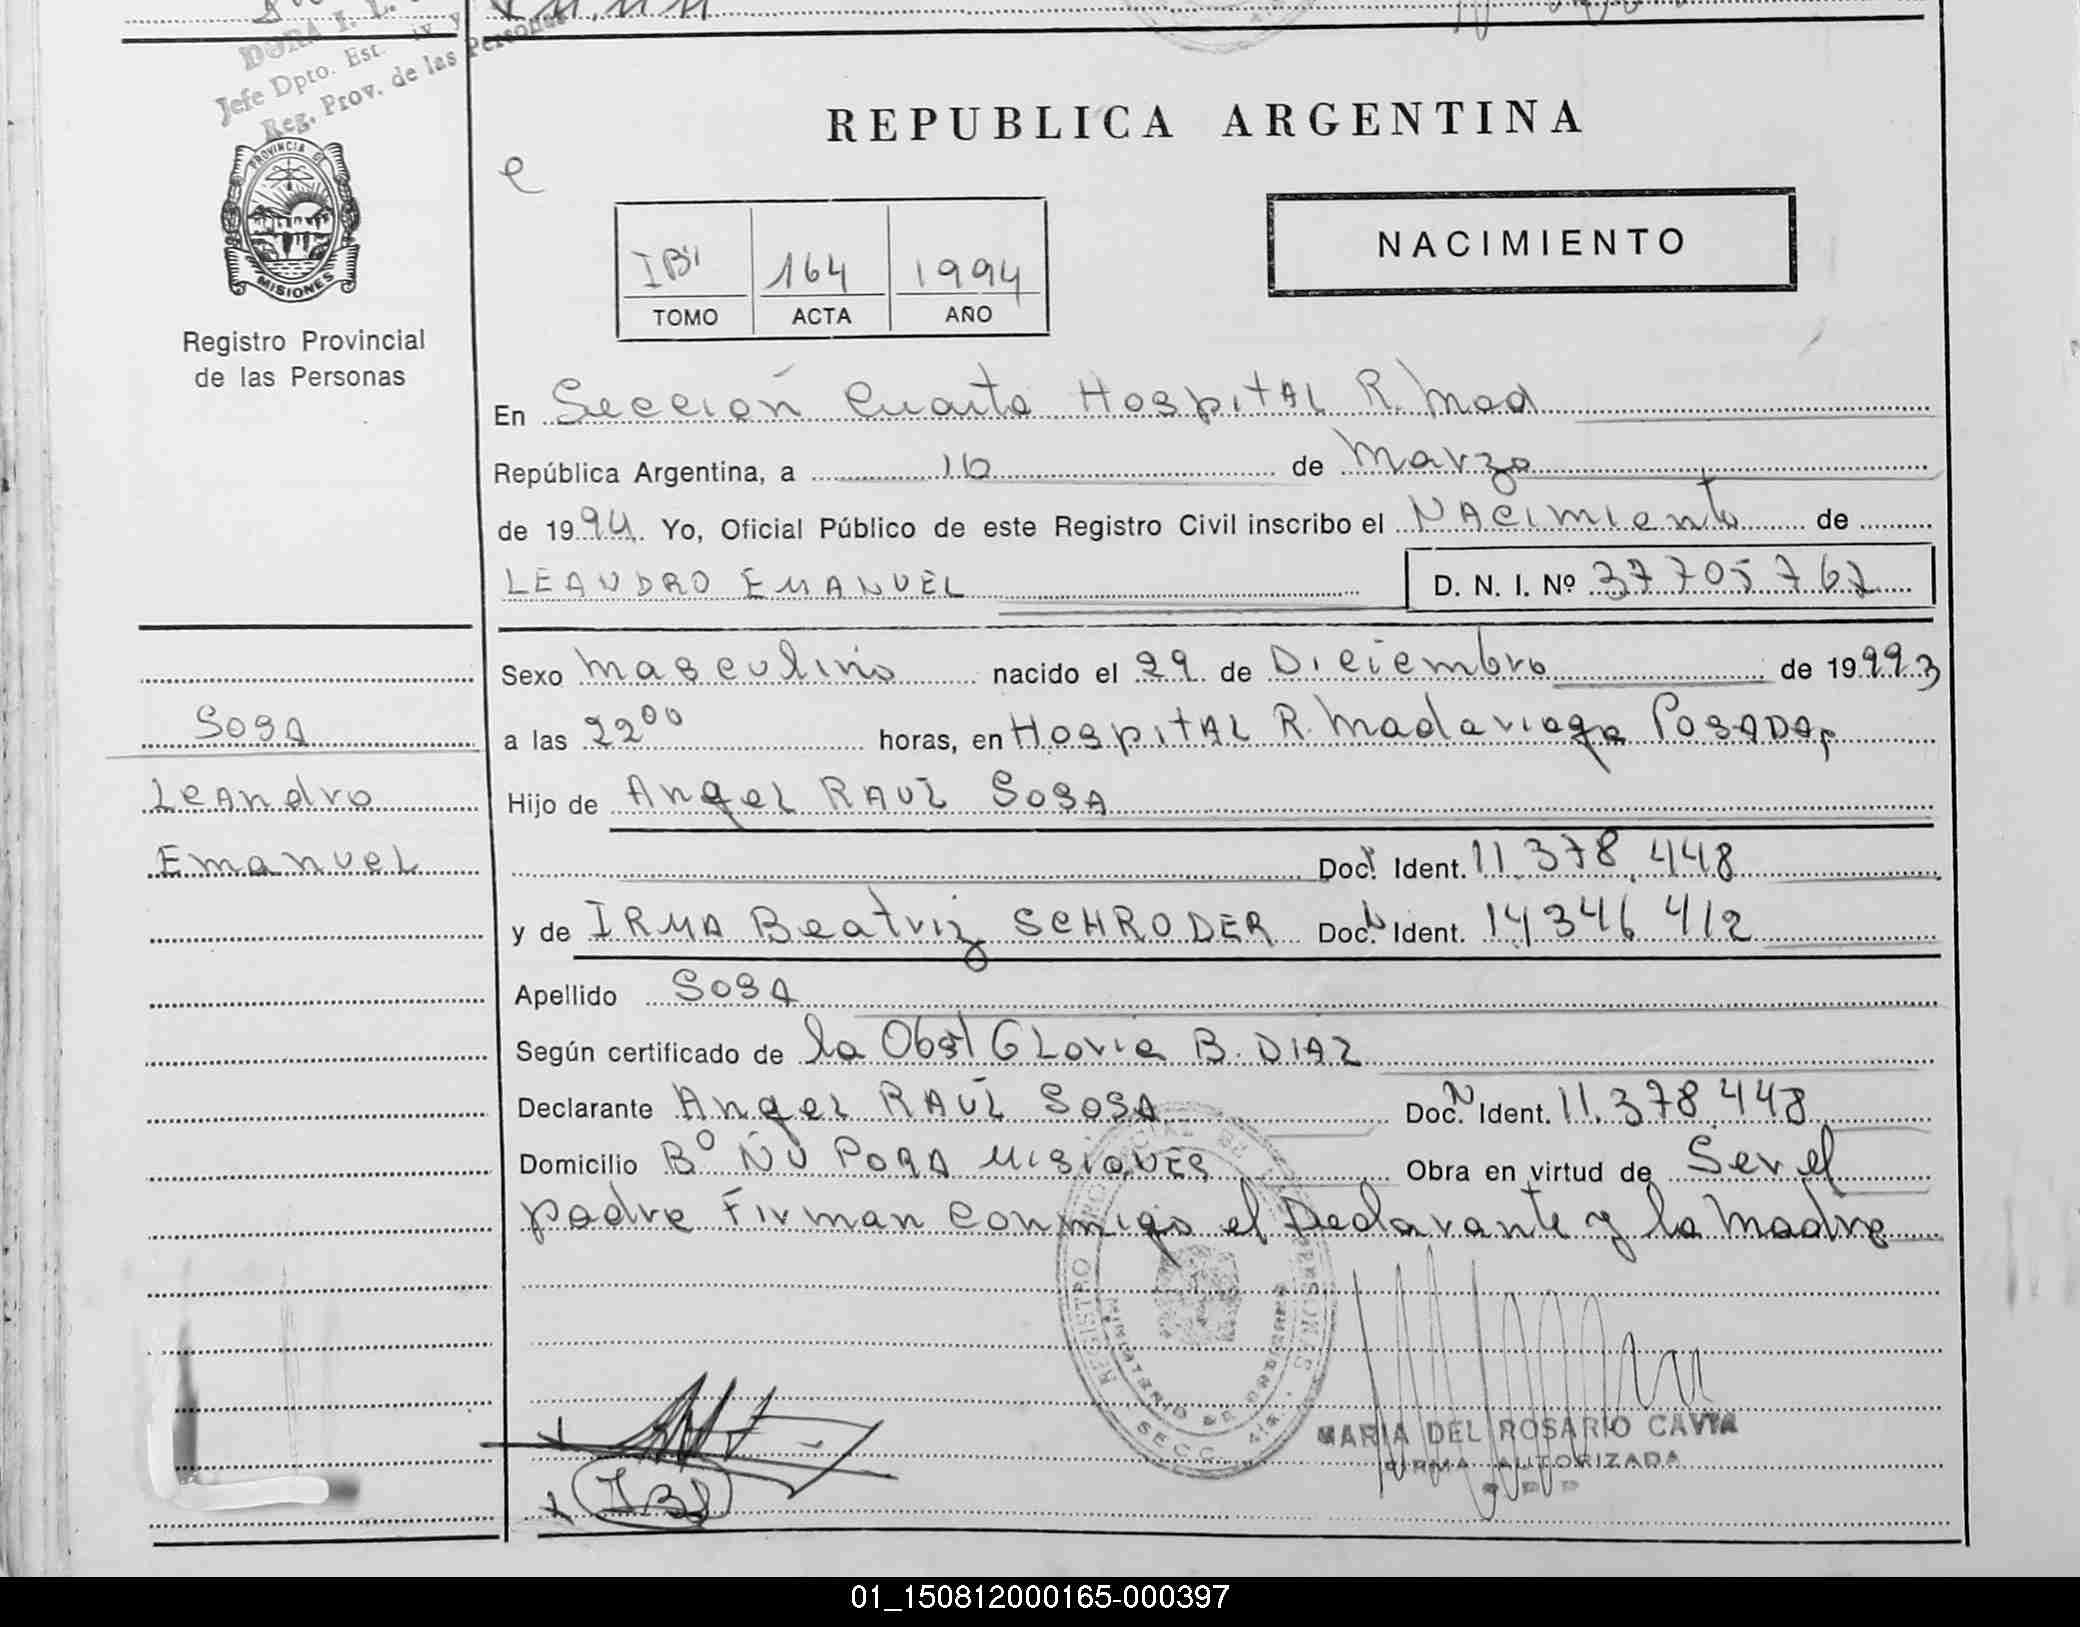 Jefe Dpto. Est. Civ y
Reg. Prov. de las Personas
PROVINCIA DE
MISIONES
Registro Provincial
de las Personas
SOSA
Leandro
Emanuel
REPUBLICA ARGENTINA
e
IBⁱⁱ 164 1994
TOMO ACTA AÑO
NACIMIENTO
En Sección Cuarta Hospital R. Mad
República Argentina, a 16 de Marzo
de 1994. Yo, Oficial Público de este Registro Civil inscribo el Nacimiento de
LEANDRO EMANUEL D. N. I. Nº 37705767
Sexo masculino nacido el 29 de Diciembre de 19993
a las 22⁰⁰ horas, en Hospital R. Madariaga Posadas
Hijo de Angel RAÚL SOSA
Doc. Ident. 11.378.448
y de IRMA Beatriz SCHRODER Doc. Ident. 14346412
Apellido SOSA
Según certificado de la Obst GLoria B. DIAZ
Declarante Angel RAÚL SOSA Doc. Ident. 11.378.448
Domicilio Bº ÑU PORA MISIONES Obra en virtud de Ser el
padre Firman conmigo el Declarante y la Madre
REGISTRO PROVINCIAL DE LAS PERSONAS
MINISTERIO DE GOBIERNO
SECC. 4ta.
MARIA DEL ROSARIO CAVIA
FIRMA AUTORIZADA
IBS
01_150812000165-000397